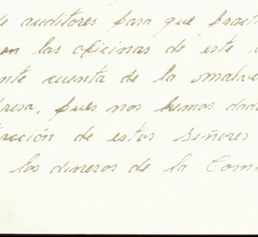 de auditores para que pract
en las oficinas de este
nte cuenta de la malve
resa, pues nos hemos dado
tracción de estos señores
los dineros de la Com